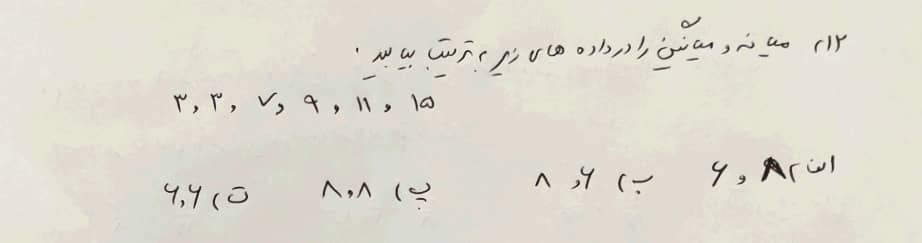 ۱۲) میانه و میانگین را در داده های زیر به ترتیب بیابید.
۱۵ و ۱۱ و ۹ و ۷ و ۳ و ۳
الف) ۸ و ۶ ب) ۶ و ۸ پ) ۸ و ۸ ت) ۶ و ۶